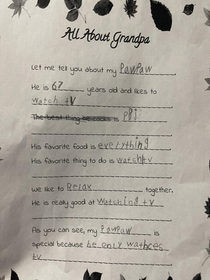 All About Grandpa
Let me tell you about my PawPaw
He is 67 years old and likes to
watch tv
The best thing he cooks is PPJ
His favorite food is everything
His favorite thing to do is watch tv
We like to Relax together.
He is really good at watching tv
As you can see, my PawPaw is
special because he only wathces
tv